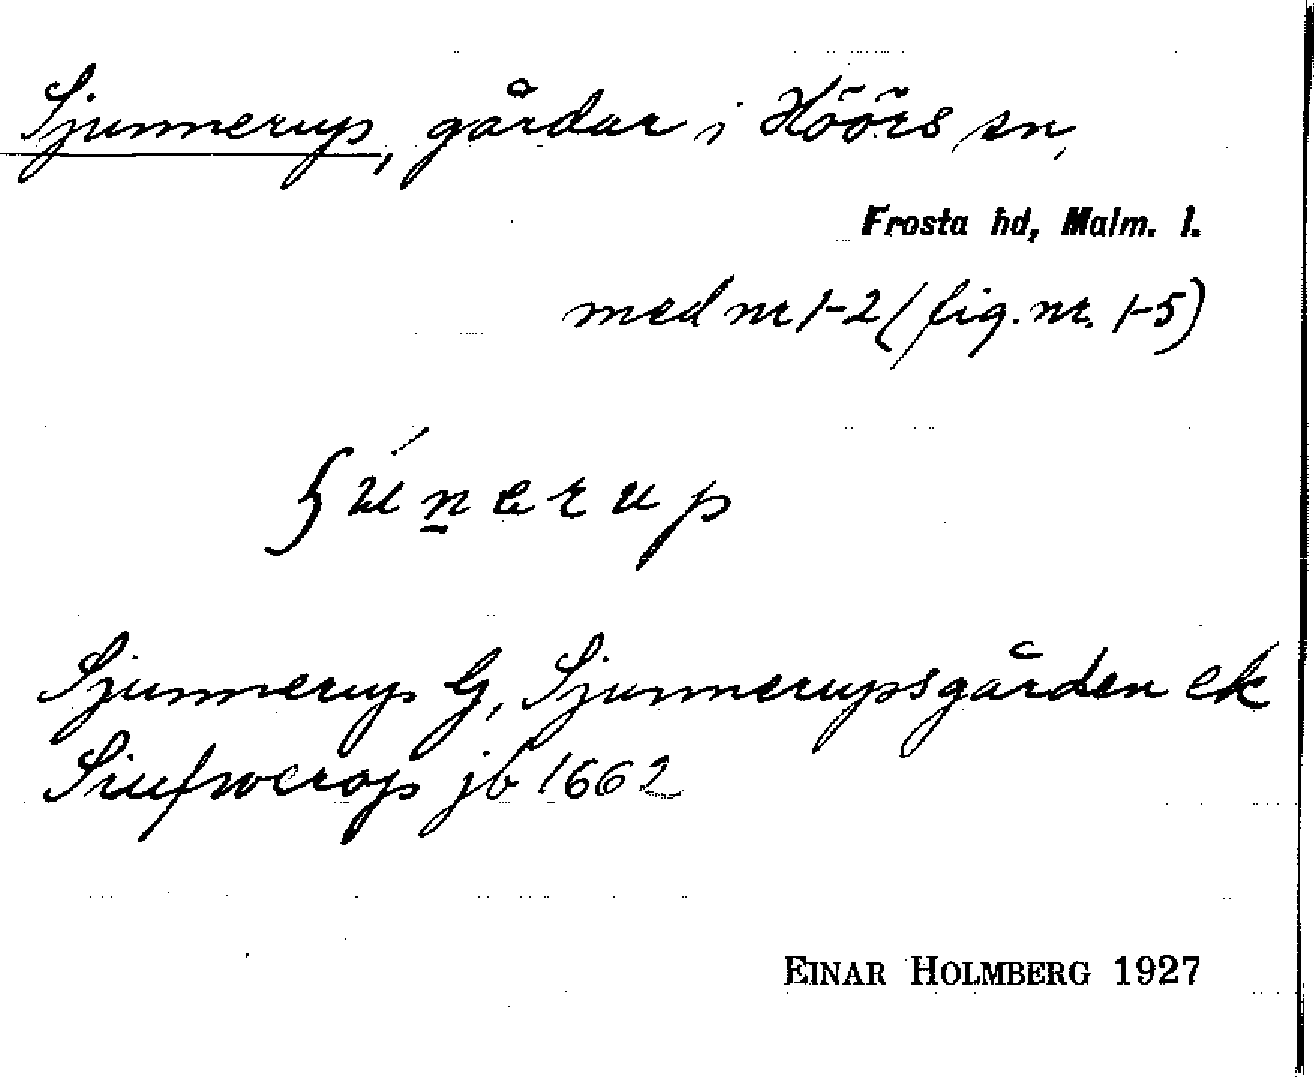 Sjunnerup, gårdar i Höörs sn,
Frosta hd, Malm. l.
med nr 1-2 (fig. nr. 1-5)
ʃúnerup
Sjunnerup G, Sjunnerupsgården ek
Siufwerop jb 1662
EINAR HOLMBERG 1927